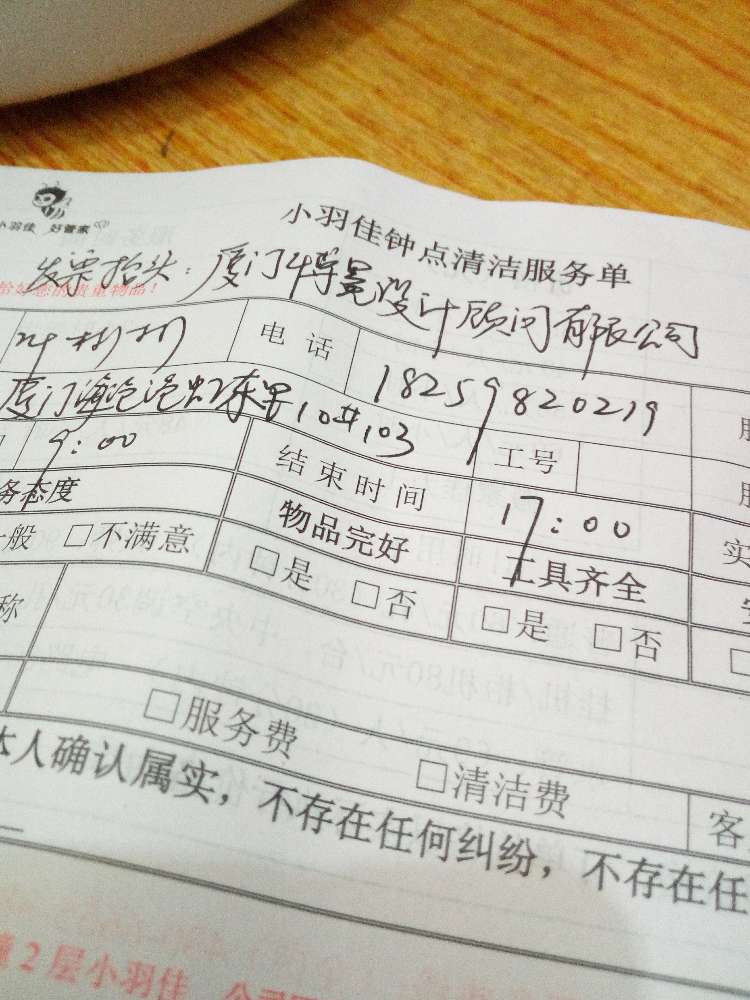 小羽佳 好管家
小羽佳钟点清洁服务单
发票抬头：厦门博冕设计顾问有限公司
您的贵重物品！
叶彬彬 电话 18259820219
厦门海沧沧虹东里10#103 工号
9:00 结束时间 17:00
务态度 物品完好 工具齐全 实
一般 □不满意 □是 □否 □是 □否
称
□服务费 □清洁费
本人确认属实，不存在任何纠纷，不存在任
客
2层小羽佳